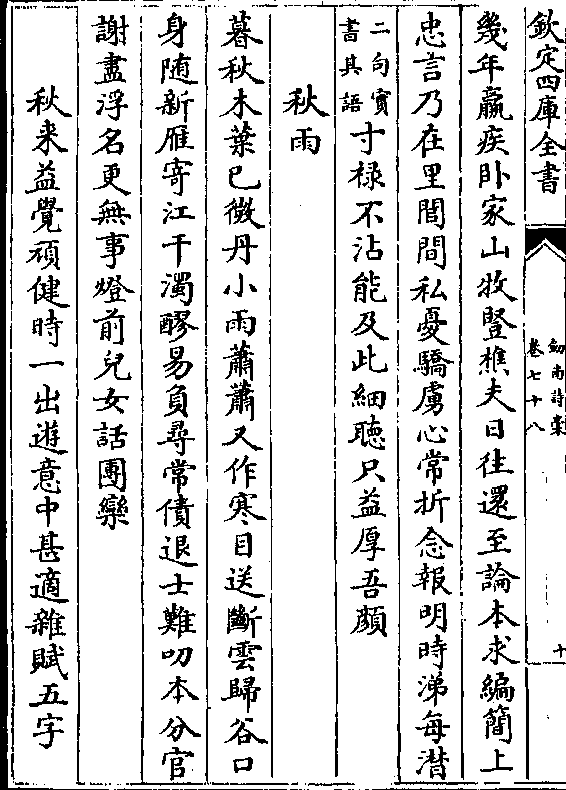 欽定四庫全書
劒南詩藁
卷七十八
十
幾年羸疾卧家山牧豎樵夫日往還至論本求編簡上
忠言乃在里閭間私憂驕虜心常折念報明時涕每潸
二句實
書其語
寸禄不沾能及此細聽只益厚吾顔
秋雨
暮秋木葉已微丹小雨蕭蕭又作寒目送斷雲歸谷口
身随新雁寄江干濁醪易負尋常債退士難叨本分官
謝盡浮名更無事燈前兒女話團欒
秋来益覺頑健時一出遊意中甚適雜賦五字